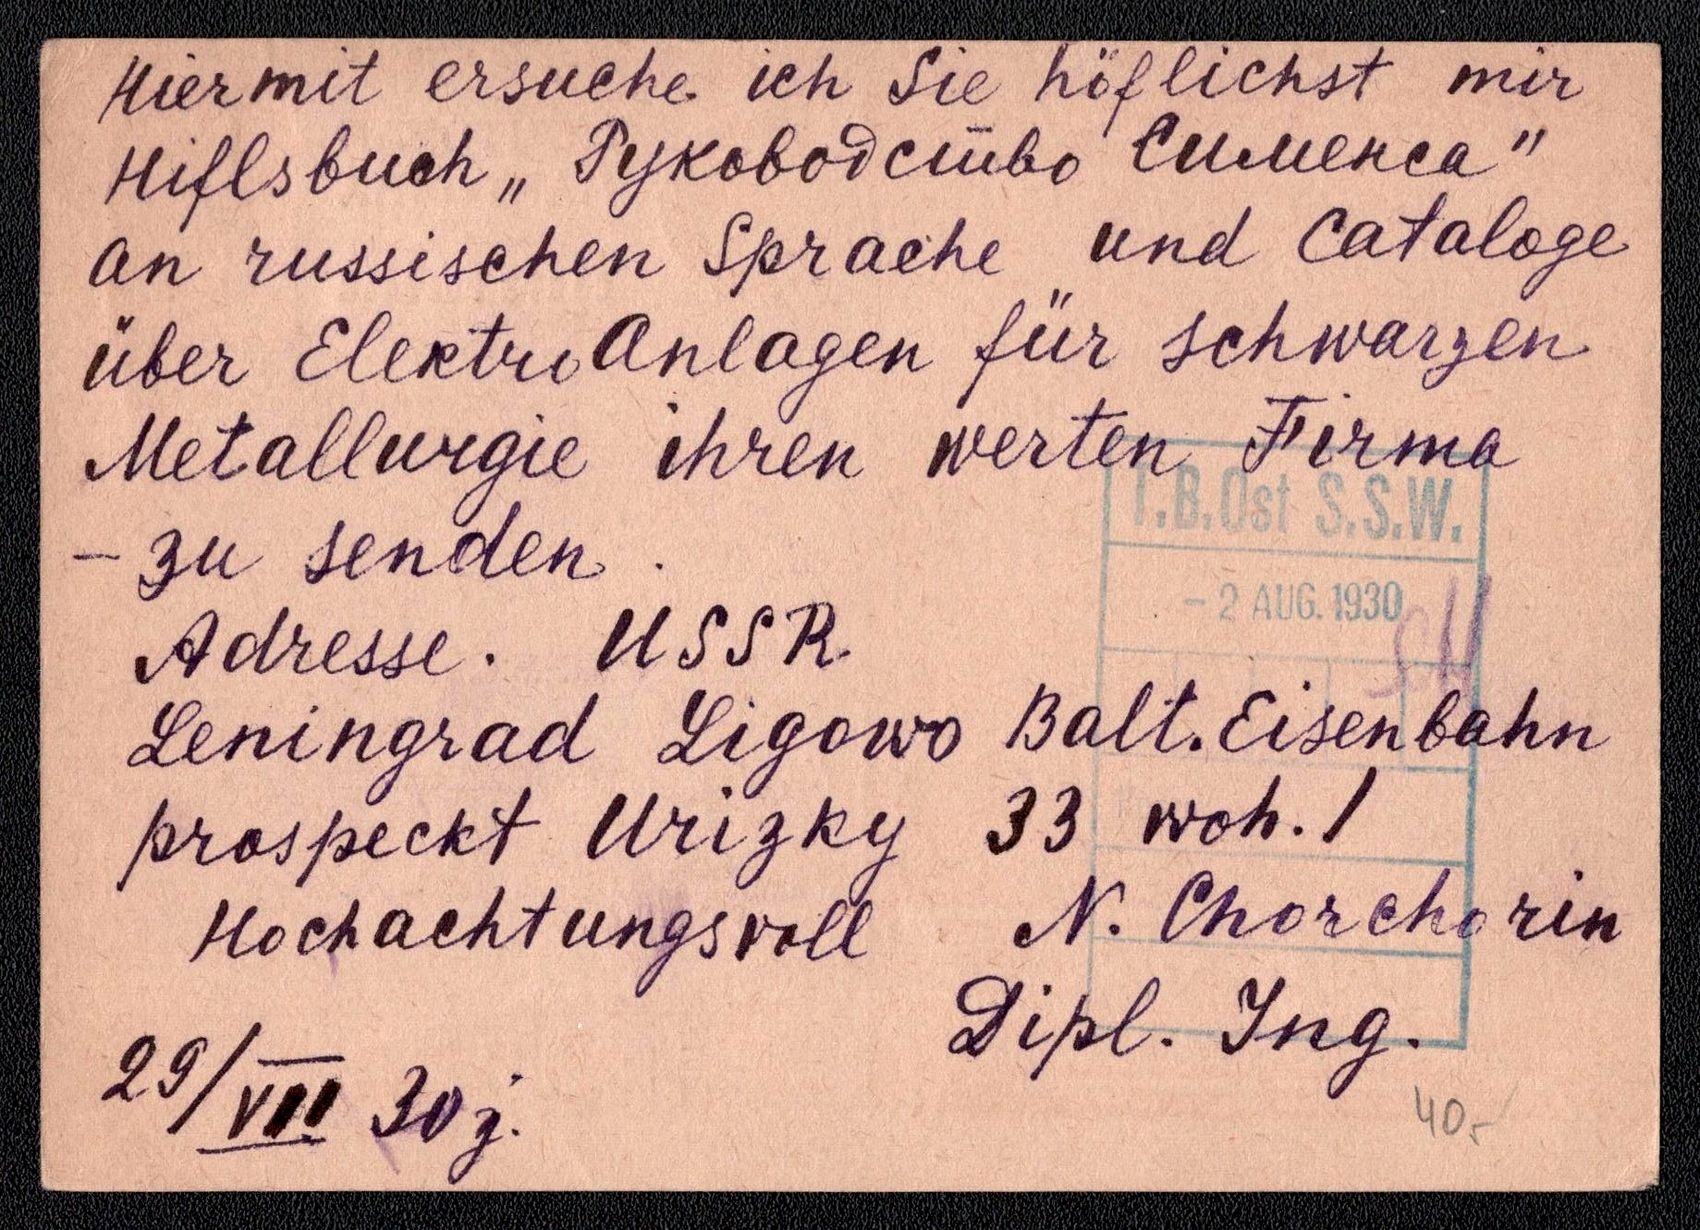 Hiermit ersuche ich Sie höflichst mir
Hiflsbuch „ Руководство Сименса"
an russischen Sprache und Cataloge
über Elektro Anlagen für schwarzen
Metallurgie ihren werten Firma
– zu senden.
Adresse. USSR.
Leningrad Ligowo Balt. Eisenbahn
prospeckt Urizky 33 woh. 1
Hochachtungsvoll N. Chorchorin
Dipl. Ing.
29/VII 30 j.
T.B.Ost S.S.W.
- 2 AUG. 1930
40.-